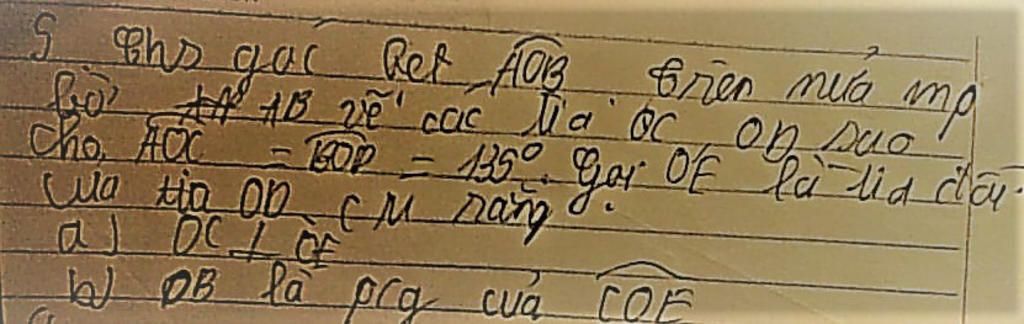 5 Cho góc bẹt AOB trên nửa mp
bờ AB vẽ các tia OC OD sao
cho AOC = BOD = 135° Gọi OE là tia đối
của tia OD CM rằng:
a) OC ⊥ OE
b) OB là pcg của COE